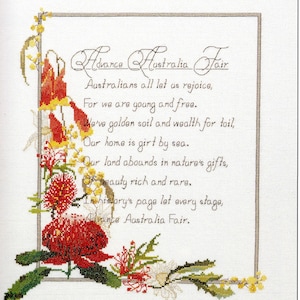 Advance Australia Fair
Australians all let us rejoice,
For we are young and free.
We've golden soil and wealth for toil,
Our home is girt by sea.
Our land abounds in nature's gifts,
Of beauty rich and rare.
In history's page let every stage,
Advance Australia Fair.